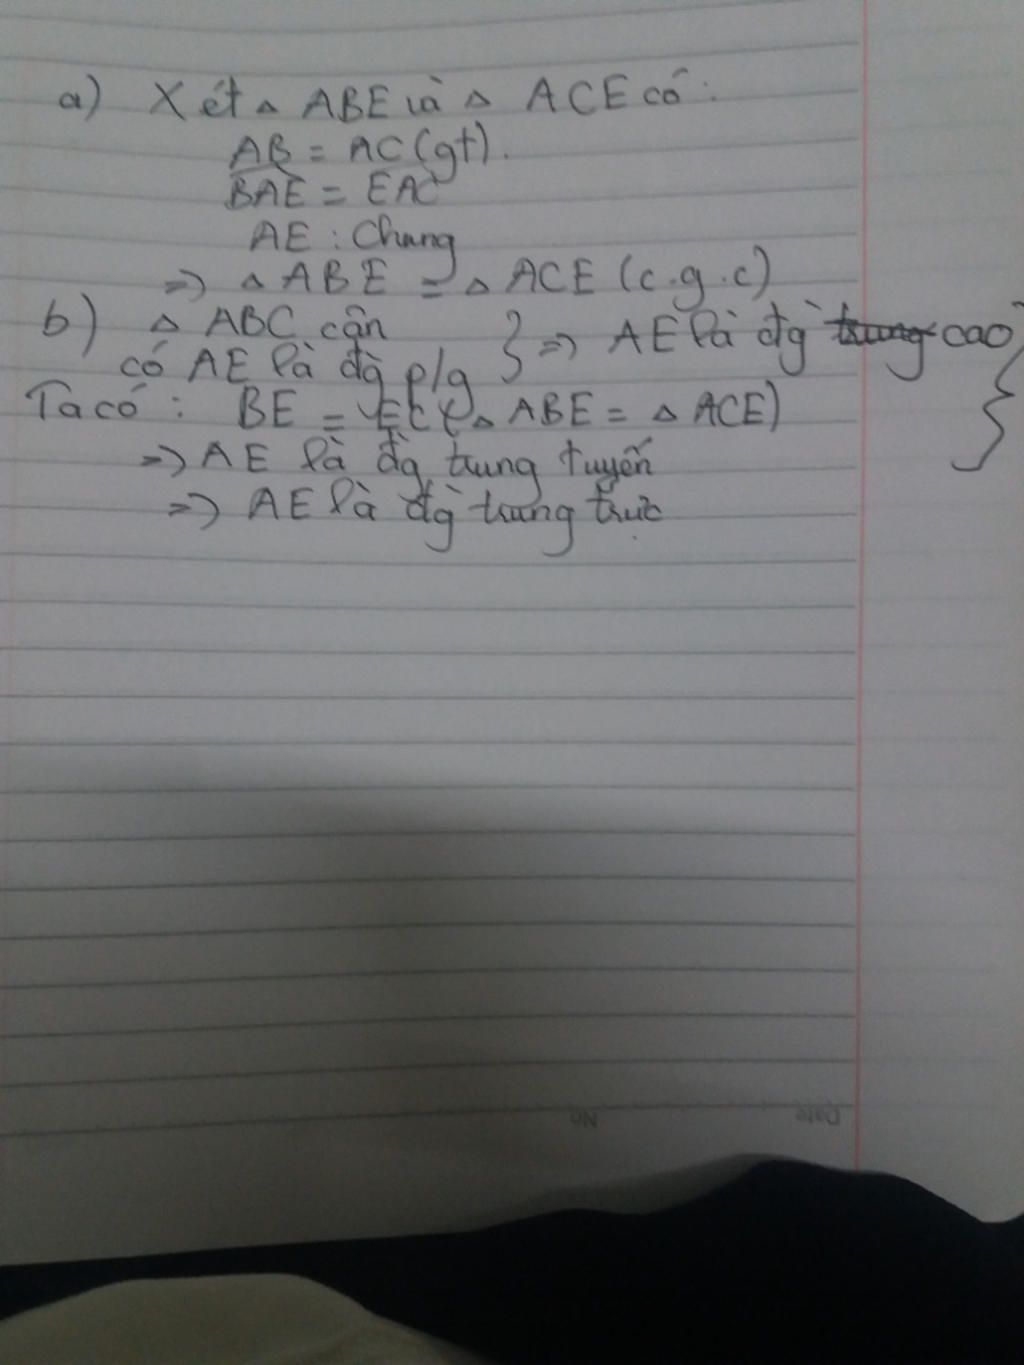 a) Xét △ ABE và △ ACE có:
AB = AC (gt).
BAE = EAC
AE : Chung
=> △ ABE = △ ACE (c.g.c)
b) △ ABC cân } => AE là đg` trung cao }
có AE là đg` p/g
Ta có : BE = EC (△ ABE = △ ACE)
=> AE là đg` trung tuyến
=> AE là đg` trung trực
No Date